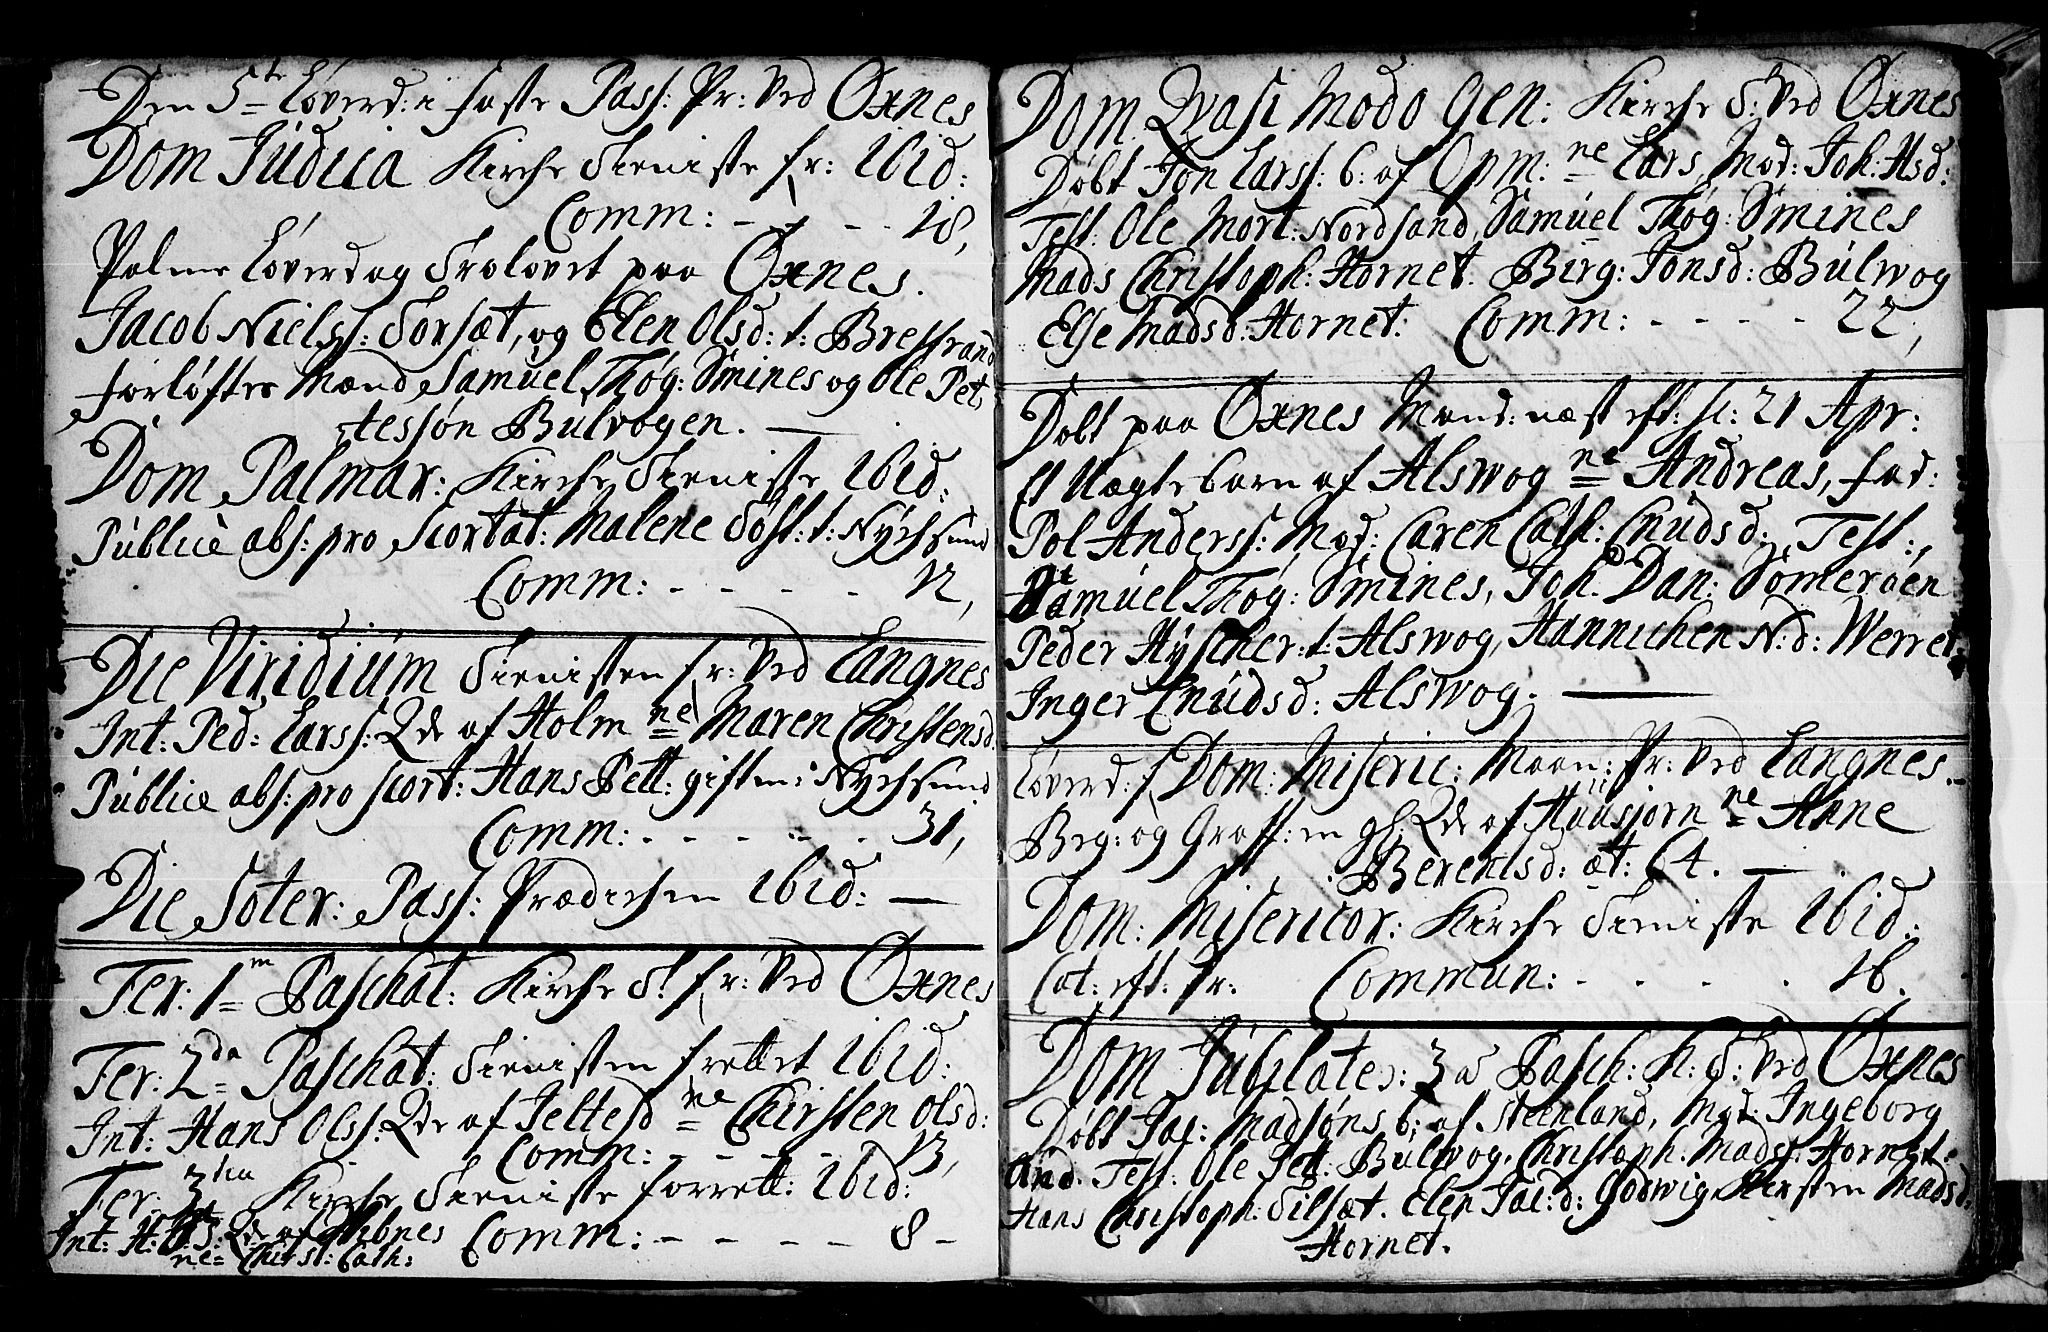 Den 5te Løverd: i faste Pass: Pr: Ved Øxnes
Dom Judica Kirche Tieniste fr: Ibid:
Comm: - - - - 18,
Palme Løverdag Trolovet paa Øxnes.
Jacob Nielss: Torsæt, og Elen Olsd: t: Brestrand
forløftes Mænd Samuel Thøg: Smines og Ole Pet
tessøn Bulvogen.
Dom Palmar: Kirche Tieniste Ibid:
Publicè abs: pro scortat: Malene Tost: t: Nychsund
Comm: - - - - 12,
Die Viridium Tienisten fr: Ved Langnes
Int: Ped: Larss: Qde af Holm ne Maren Christensd.
Publicè abs: pro scort: Hans Pett: gift m: i Nychsund
Comm: - - - - - 31,
Die Soter: Pass: Prædichen Ibid: —
Fer: 1m Paschat: Kirche T: fr: Ved Øxnes
Fer: 2da Paschat: Tienisten frettet Ibid:
Int: Hans Olss: Qde af Jeltefd ne Chirsten Olsd:
Comm: - - - - 13,
Fer: 3tia Kirche Tieniste forrett: Ibid:
Int: H: Qde af
ne Chirst: Cath: Comm: - - - - 8 -
Dom Qvasi Modo Gen: Kirche T: Ved Øxnes
Døbt Jon Larss: b: af Opm: ne Lars, Mod: Joh: Hsd:
Test: Ole Mort: Nordsand, Samuel Thøg: Smines
Mads Christoph: Hornet. Birg: Jonsd: Bulwog
Else Madsd: Hornet. Comm: - - - - 22,
Døbt paa Øxnes Mand: næst eft: sc: 21 Apr:
Et Uægte barn af Alswog ne Andreas, fad:
Pol Anderss: Mod: Caren Cath: Cnudsd: Test:,
Samuel Thøg: Smines, Joh: Dan: Sømerøen
Peder Hyscher: t: Alswog, Hannichen N:d: Werret.
Inger Cnudsd: Alswog. —
Løverd: f Dom: Miseric: Maan: Pr: Ved Langnes.
Beg: og Graff: en gl: Qde af Huusjorn ne Anne
Berentsd: æt: 64. —
Dom: Misericor: Kirche Tieniste Ibid:
Cat: eft: Pr: Commun: - - - - 16.
Dom Jubilate: 3 a Pasch: K: T: Ved Øxnes
Døbt Jac: Madsøns b: af Steenland, Mod: Ingeborg
And. Test: Ole Pett: Bulwog. Christoph: Madss: Hornet.
Hans Christoph: Tilsæt. Elen Jac:d: Godwig Kirsten Madsd:
Hornet.